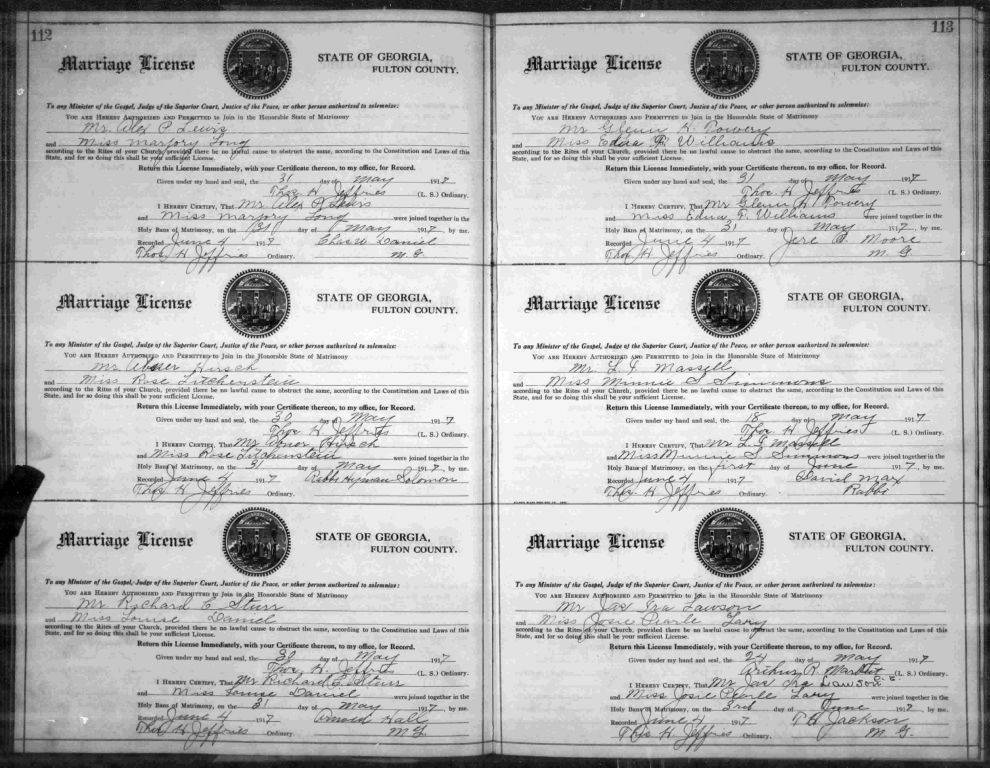 112
Marriage License
STATE OF GEORGIA,
FULTON COUNTY.
To any Minister of the Gospel, Judge of the Superior Court, Justice of the Peace, or other person authorized to solemnize:
YOU ARE HEREBY AUTHORIZED AND PERMITTED to Join in the Honorable State of Matrimony
Mr. Alex P Lewis
and Miss Marjory Long
according to the Rites of your Church, provided there be no lawful cause to obstruct the same, according to the Constitution and Laws of this
State, and for so doing this shall be your sufficient License.
Return this License Immediately, with your Certificate thereon, to my office, for Record.
Given under my hand and seal, the 31 day of May 1917
Thos H Jeffries (L. S.) Ordinary.
I HEREBY CERTIFY, That Mr Alex P Lewis
and Miss Marjory Long were joined together in the
Holy Bans of Matrimony, on the 31 day of May 1917, by me.
Recorded June 4 1917 Chas W Daniel
Thos H Jeffries Ordinary. M. G.
Marriage License
STATE OF GEORGIA,
FULTON COUNTY.
To any Minister of the Gospel, Judge of the Superior Court, Justice of the Peace, or other person authorized to solemnize:
YOU ARE HEREBY AUTHORIZED AND PERMITTED to Join in the Honorable State of Matrimony
Mr Hirsch
and Miss Rose Litchenstein
according to the Rites of your Church, provided there be no lawful cause to obstruct the same, according to the Constitution and Laws of this
State, and for so doing this shall be your sufficient License.
Return this License Immediately, with your Certificate thereon, to my office, for Record.
Given under my hand and seal, the 30 day of May 1917
Thos H Jeffries (L. S.) Ordinary.
I HEREBY CERTIFY, That Mr Hirsch
and Miss Rose Litchenstein were joined together in the
Holy Bans of Matrimony, on the 31 day of May 1917, by me.
Recorded June 4 1917 Rabbi Hyman Solomon
Thos H Jeffries Ordinary.
Marriage License
STATE OF GEORGIA,
FULTON COUNTY.
To any Minister of the Gospel, Judge of the Superior Court, Justice of the Peace, or other person authorized to solemnize:
YOU ARE HEREBY AUTHORIZED AND PERMITTED to Join in the Honorable State of Matrimony
Mr Richard E Sturr
and Miss Louise Daniel
according to the Rites of your Church, provided there be no lawful cause to obstruct the same, according to the Constitution and Laws of this
State, and for so doing this shall be your sufficient License.
Return this License Immediately, with your Certificate thereon, to my office, for Record.
Given under my hand and seal, the 30 day of May 1917
Thos H. Jeffries (L. S.) Ordinary.
I HEREBY CERTIFY, That Mr Richard E Sturr
and Miss Louise Daniel were joined together in the
Holy Bans of Matrimony, on the 31 day of May 1917, by me.
Recorded June 4 1917 Arnold Hall
Thos H Jeffries Ordinary. M. G.
113
Marriage License
STATE OF GEORGIA,
FULTON COUNTY.
To any Minister of the Gospel, Judge of the Superior Court, Justice of the Peace, or other person authorized to solemnize:
YOU ARE HEREBY AUTHORIZED AND PERMITTED to Join in the Honorable State of Matrimony
Mr Glenn H. Powery
and Miss Edna P. Williams
according to the Rites of your Church, provided there be no lawful cause to obstruct the same, according to the Constitution and Laws of this
State, and for so doing this shall be your sufficient License.
Return this License Immediately, with your Certificate thereon, to my office, for Record.
Given under my hand and seal, the 31 day of May 1917
Thos H Jeffries (L. S.) Ordinary.
I HEREBY CERTIFY, That Mr Glenn H. Powery
and Miss Edna P. Williams were joined together in the
Holy Bans of Matrimony, on the 31 day of May 1917, by me.
Recorded June 4 1917 Jere Moore
Thos H Jeffries Ordinary. M. G.
Marriage License
STATE OF GEORGIA,
FULTON COUNTY.
To any Minister of the Gospel, Judge of the Superior Court, Justice of the Peace, or other person authorized to solemnize:
YOU ARE HEREBY AUTHORIZED AND PERMITTED to Join in the Honorable State of Matrimony
Mr. L. J Massell
and Miss Minnie S Simmons
according to the Rites of your Church, provided there be no lawful cause to obstruct the same, according to the Constitution and Laws of this
State, and for so doing this shall be your sufficient License.
Return this License Immediately, with your Certificate thereon, to my office, for Record.
Given under my hand and seal, the 18 day of May 1917
Thos H Jeffries (L. S.) Ordinary.
I HEREBY CERTIFY, That Mr L. J Massell
and Miss Minnie S. Simmons were joined together in the
Holy Bans of Matrimony, on the first day of June 1917, by me.
Recorded June 4 1917 David Max
Thos H Jeffries Ordinary. Rabbi
Marriage License
STATE OF GEORGIA,
FULTON COUNTY.
To any Minister of the Gospel, Judge of the Superior Court, Justice of the Peace, or other person authorized to solemnize:
YOU ARE HEREBY AUTHORIZED AND PERMITTED to Join in the Honorable State of Matrimony
Mr Jas Ira Lawson
and Miss Josie Pearle Lary
according to the Rites of your Church, provided there be no lawful cause to obstruct the same, according to the Constitution and Laws of this
State, and for so doing this shall be your sufficient License.
Return this License Immediately, with your Certificate thereon, to my office, for Record.
Given under my hand and seal, the 24 day of May 1917
Arthur R. (L. S.) Ordinary.
I HEREBY CERTIFY, That Mr Jas Ira Lawson
and Miss Josie Pearle Lary were joined together in the
Holy Bans of Matrimony, on the 3rd day of June 1917, by me.
Recorded June 4 1917 T H Jackson
Thos H Jeffries Ordinary. M. G.